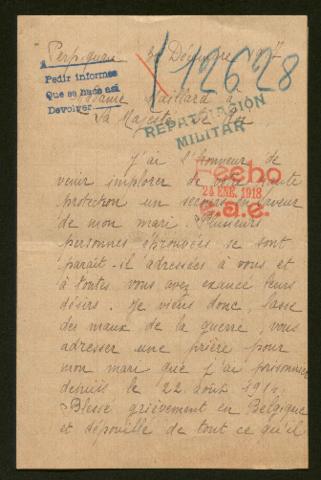 Perpignan 31 Décembre 1917
12628
A
Pedir informes
Que se hace así
Devolver
Madame Maillard à
Sa Majesté le Roi
REPATRIACIÓN
MILITAR
J'ai l'honneur de
venir implorer de votre haute
protection un secours en faveur
Fecho
24 ENE. 1918
de mon mari. Plusieurs
personnes éprouvées se sont
parait-il adressées à vous et
à toutes vous avez exaucé leurs
désirs. Je viens donc, lasse
des maux de la guerre, vous
adresser une prière pour
mon mari que j'ai prisonnier
depuis le 22 août 1914.
Blessé grièvement en Belgique
et dépouillé de tout ce qu'il